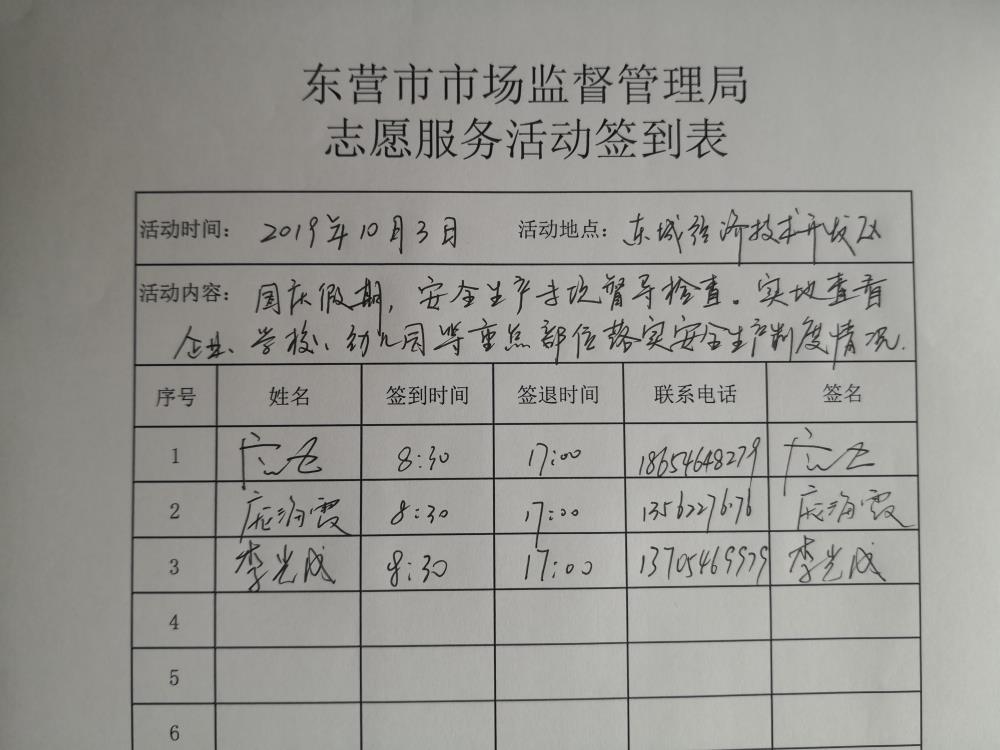 东营市市场监督管理局
志愿服务活动签到表
活动时间： 2019年10月3日 活动地点： 东城经济技术开发区
活动内容： 国庆假期，安全生产专项督导检查。实地查看
企业、学校、幼儿园等重点部位落实安全生产制度情况.
序号 姓名 签到时间 签退时间 联系电话 签名
1 8:30 17:00 18654648279
2 庞海霞 8:30 17:00 庞海霞
3 李光成 8:30 17:00 13705469979 李光成
4
5
6